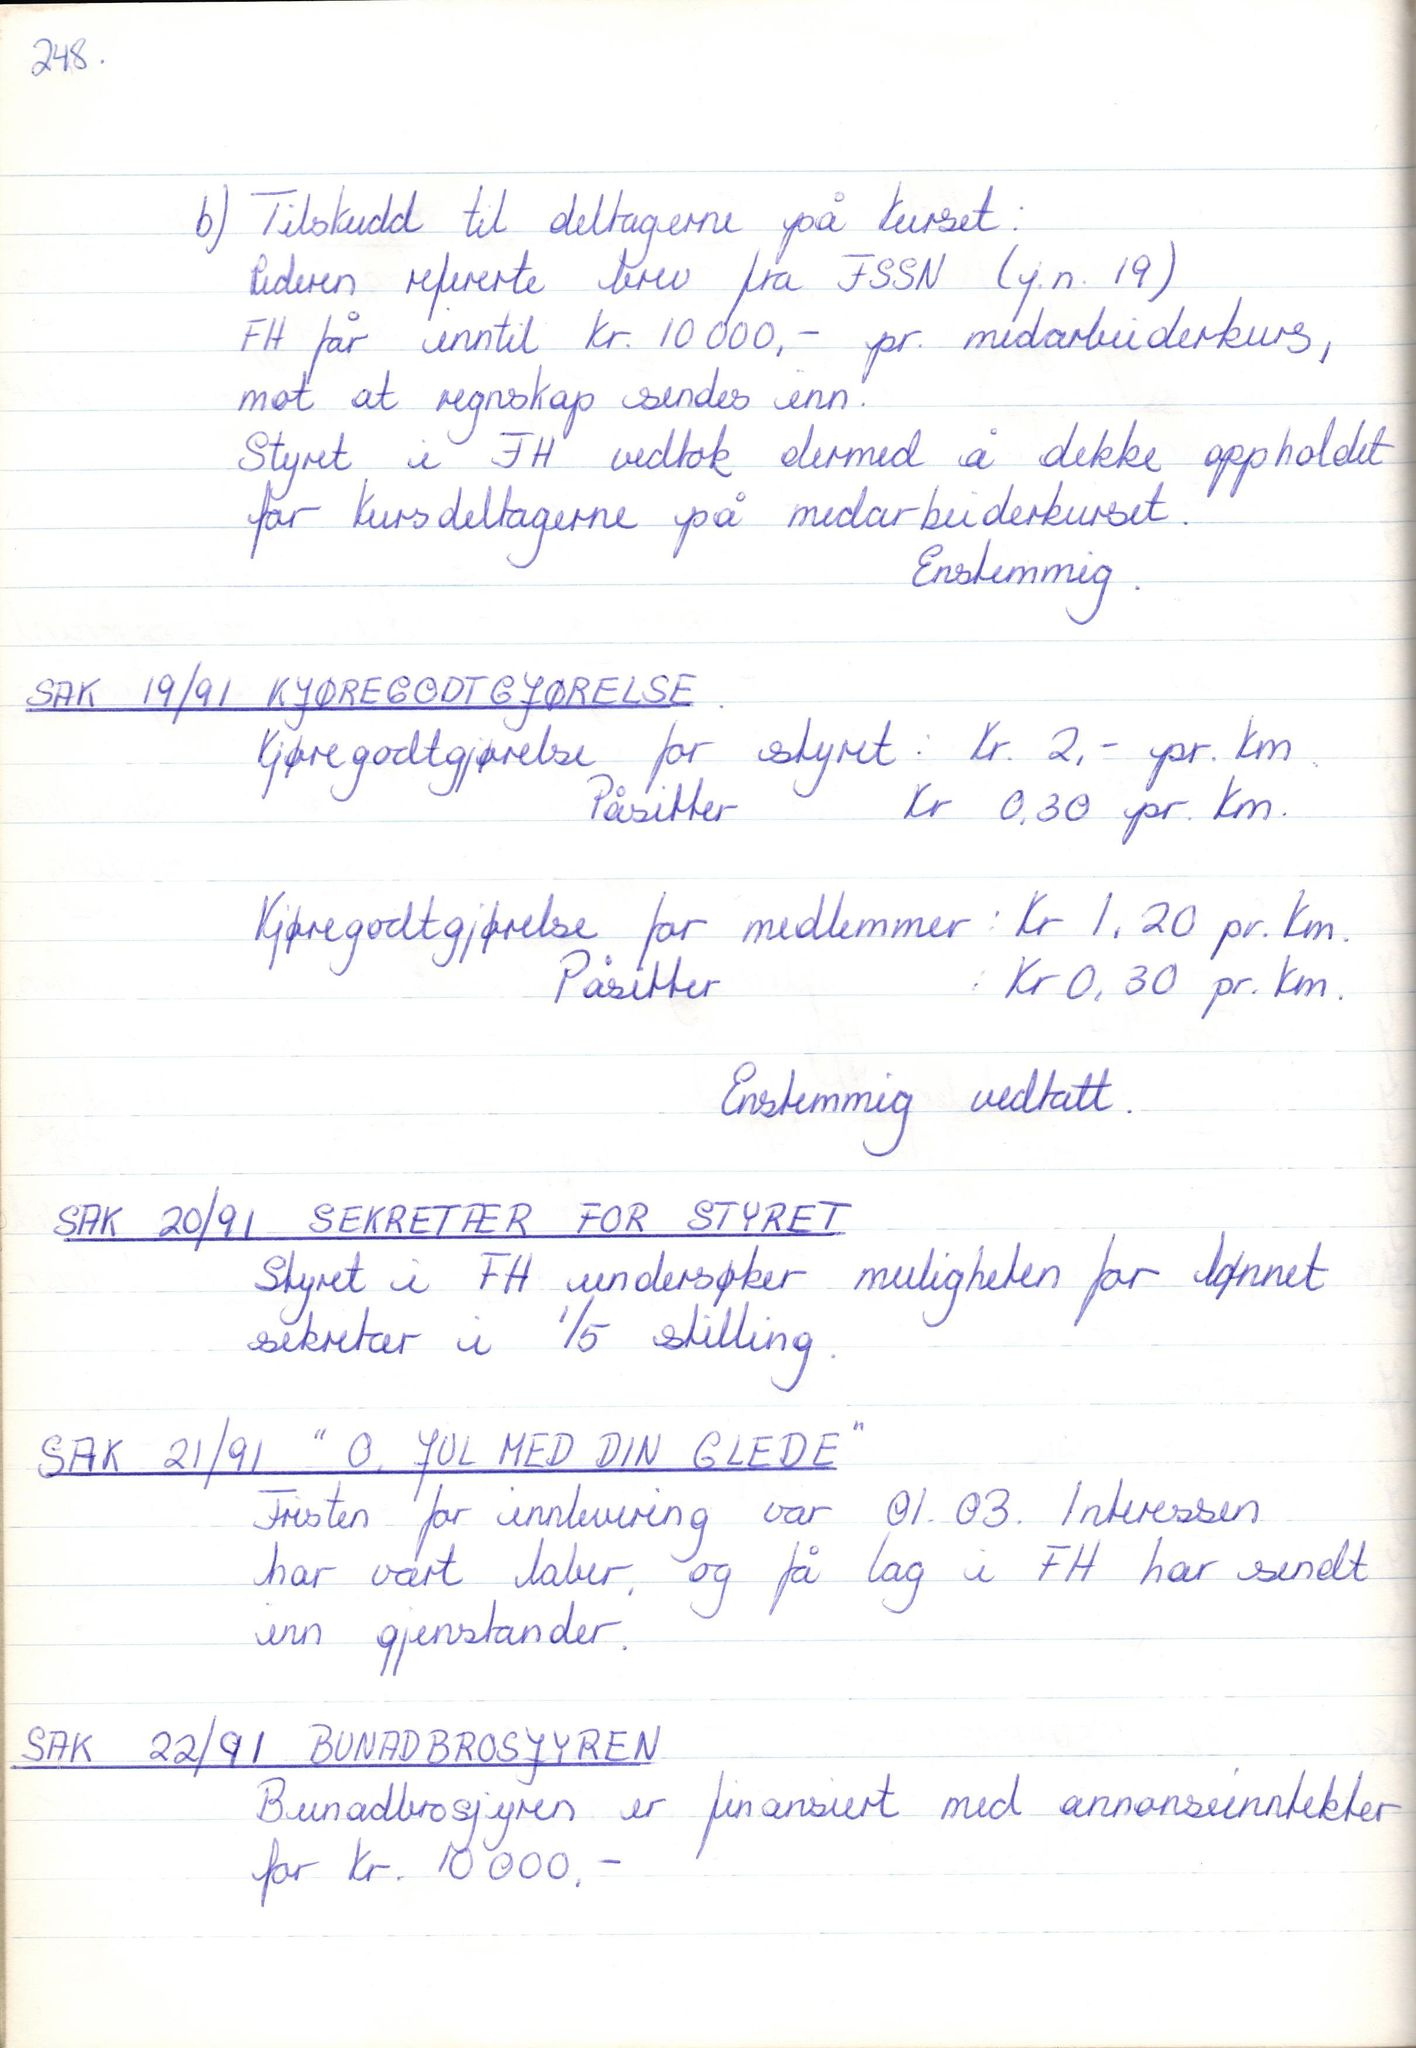 248.
b) Tilskudd til deltagerne på kurset:
Lederen refererte brev fra FSSN (j.n. 19)
FH får inntil kr. 10 000,- pr. medarbeiderkurs,
mot at regnskap sendes inn.
Styret i FH vedtok dermed å dekke oppholdet
for kursdeltagerne på medarbeiderkurset.
Enstemmig.
SAK 19/91 KJØREGODTGJØRELSE.
Kjøregodtgjørelse for styret: Kr. 2,- pr. km.
Påsitter Kr 0,30 pr. km.
Kjøregodtgjørelse for medlemmer: Kr 1,20 pr. km.
Påsitter : Kr 0,30 pr. km.
Enstemmig vedtatt.
SAK 20/91 SEKRETÆR FOR STYRET
Styret i FH undersøker muligheten for lønnet
sekretær i 1/5 stilling.
SAK 21/91 "O, JUL MED DIN GLEDE"
Fristen for innlevering var 01.03. Interessen
har vært laber, og få lag i FH har sendt
inn gjenstander.
SAK 22/91 BUNADBROSJYREN
Bunadbrosjyren er finansiert med annonseinntekter
for kr. 10 000,-